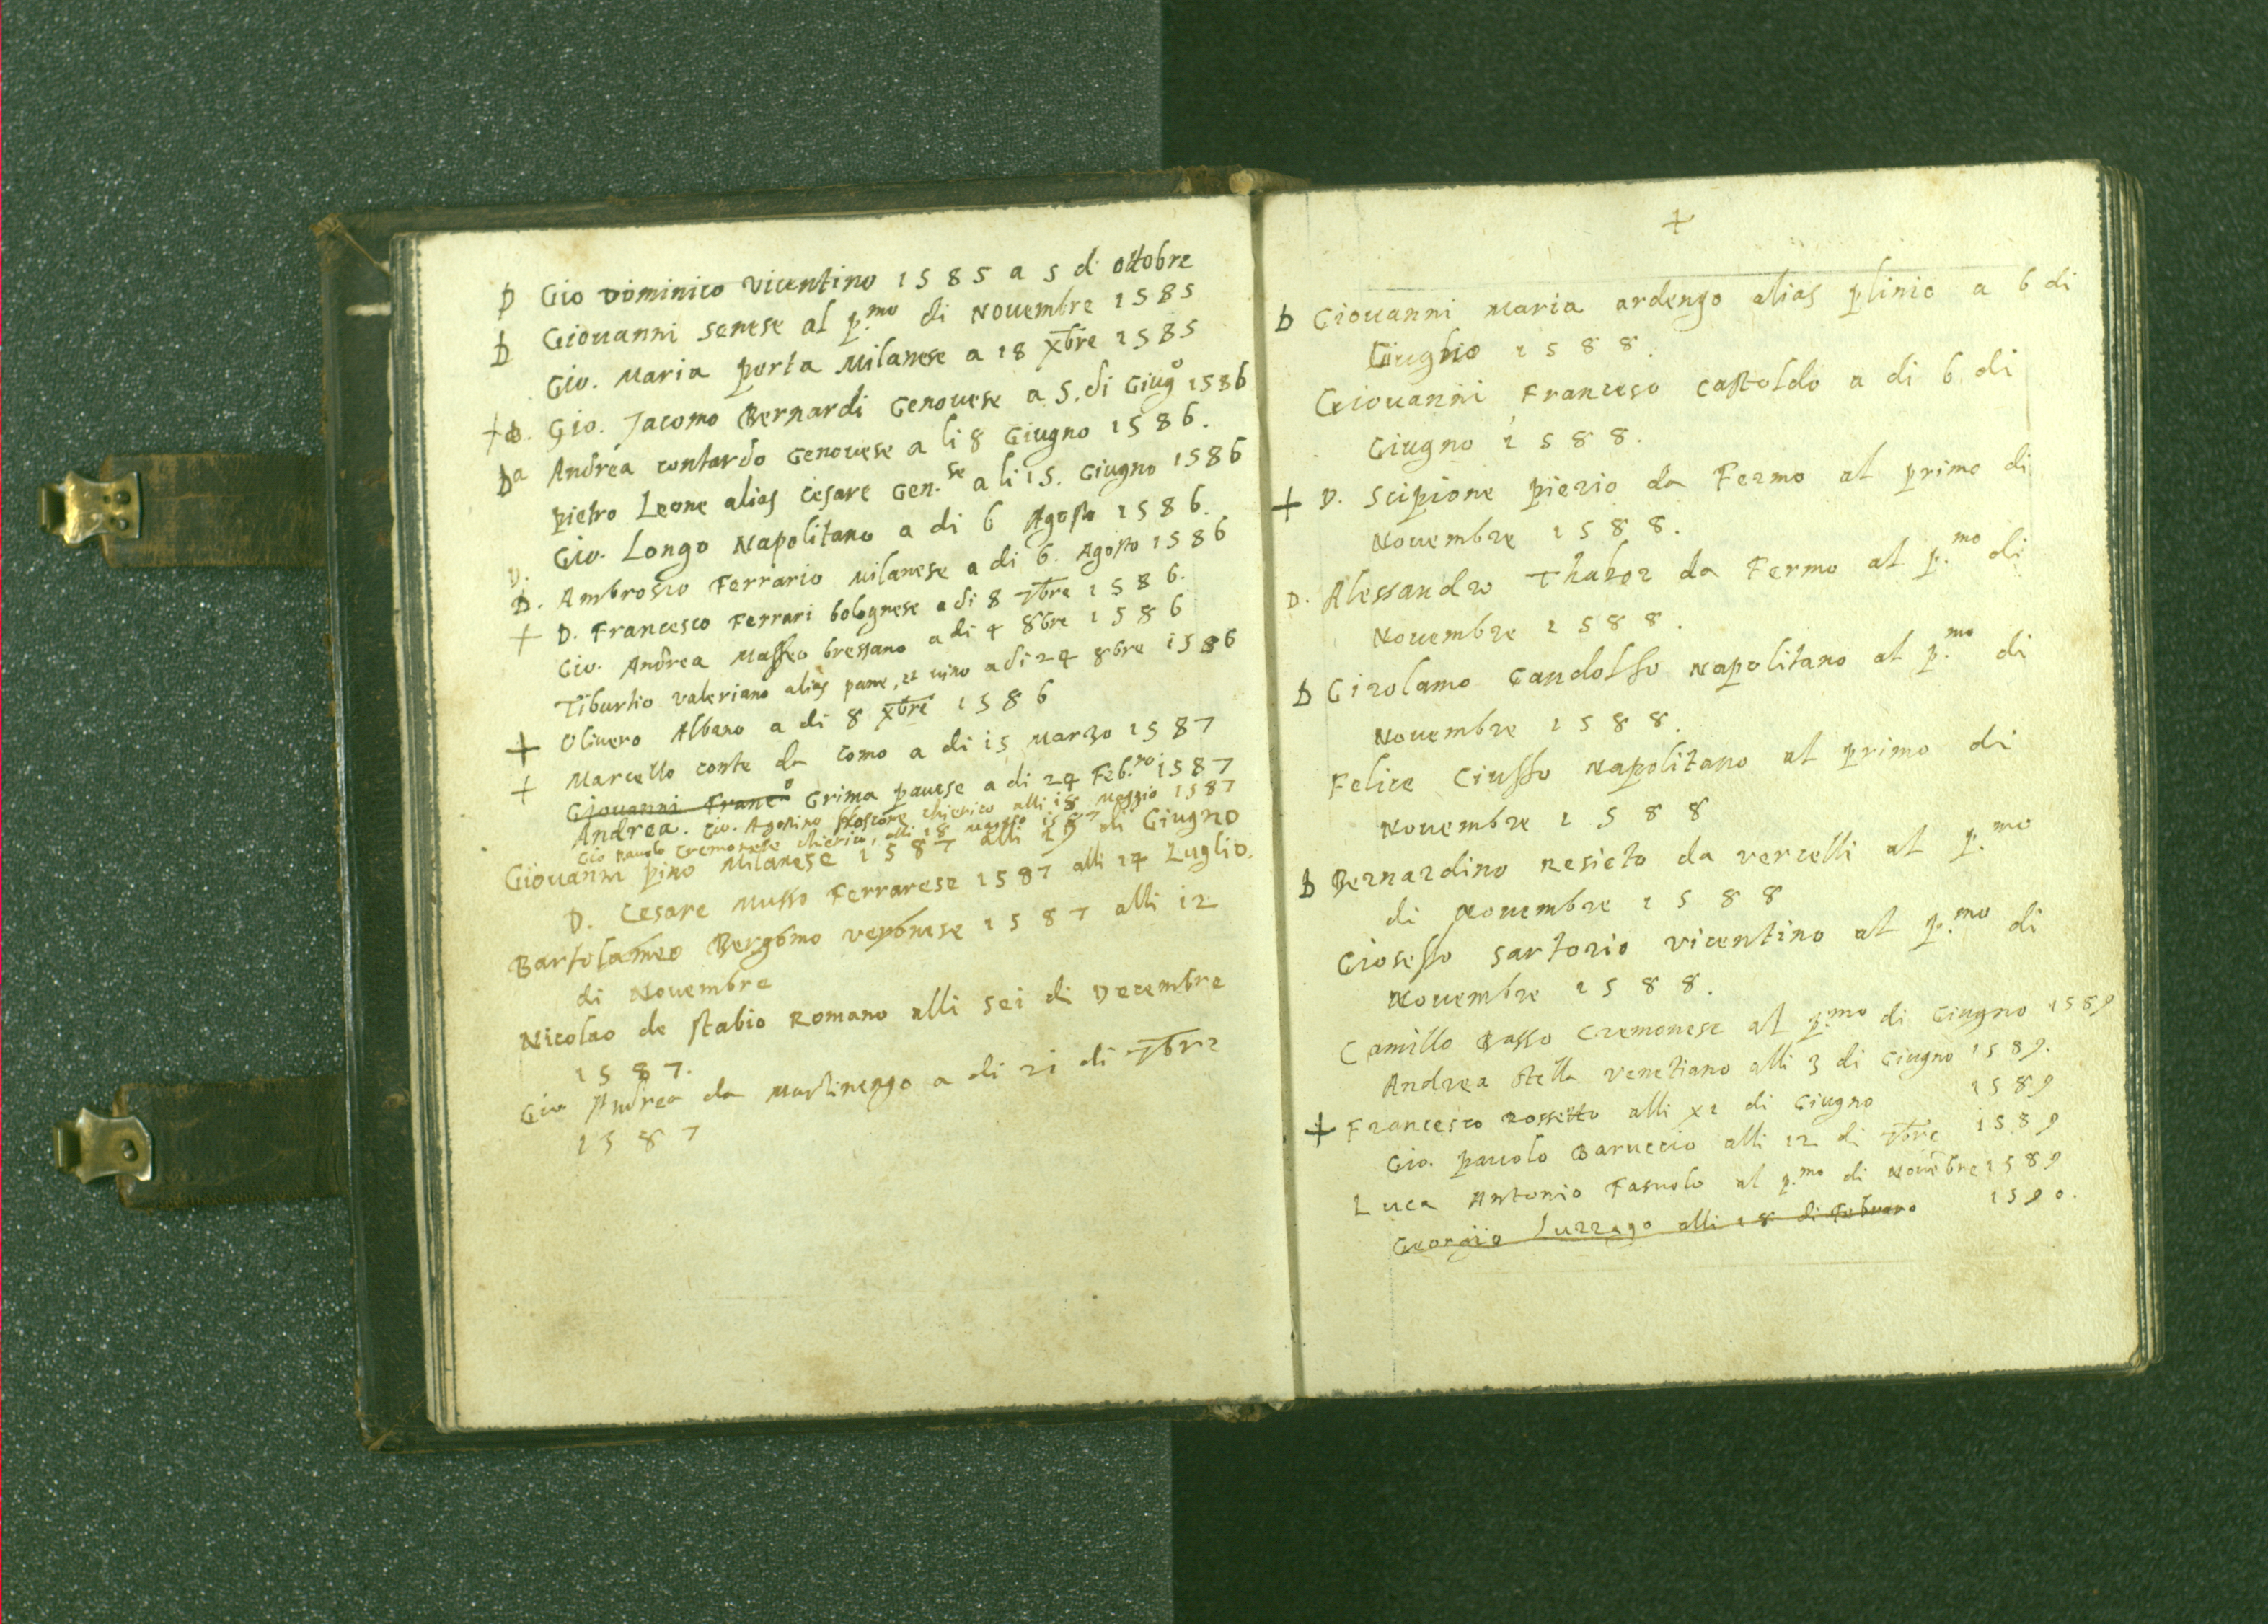 D Gio Dominico Vicentino 1585 a 5 di ottobre
D Giovanni senese al p.mo di Novembre 1585
Gio. Maria porta Milanese a 18 Xbre 1585
+ D. Gio. Jacomo Bernardi Genovese a 5. di Giugo 1586
Da Andrea contardo Genovese a li 8 Giugno 1586.
pietro Leone alias Cesare Gen.se a li 15. Giugno 1586
Gio. Longo Napolitano a di 6 Agosto 1586.
D. Ambrosio Ferrario Milanese a di 6. Agosto 1586
+ D. Francesco Ferrari bolognese a di 8 7bre 1586.
Gio. Andrea Maffeo bressano a di 4 8bre 1586
Tiburtio valeriano alias pane, et vino a di 24 8bre 1586
+ Olivero Albano a di 8 Xbre 1586
+ Marcello conte da Como a di 15 Marzo 1587
Giovanni Franc.o Grima pavese a di 24 Feb.ro 1587
Andrea. Gio. Agostino chierico alli 18 Maggio 1587
Gio pauolo Cremonese chierico, alli 18 Maggio 1587
Giovanni pino Milanese 1587 alli 29 di Giugno
D. Cesare Musso Ferrarese 1587 alli 24 Luglio.
Bartolameo Bergomo veronese 1587 alli 12
di Novembre
Nicolao de stabio Romano alli sei di Decembre
1587.
Gio Andrea da Martinengo a di 21 di 7bre
1587
+
D Giouanni Maria ardengo alias plinio a 6 di
Giuglio 1588.
Giouanni Francesco Castoldo a di 6 di
Giugno 1588.
+ D. Scipione pierio da Fermo al primo di
Nouembre 1588.
D. Alessandro Thabor da Fermo al p.mo di
Nouembre 1588.
D Girolamo Gandolfo Napolitano al p.mo di
Nouembre 1588.
Felice Ciuffo Napolitano al primo di
Nouembre 1588
D Bernardino Resicto da vercelli al p.mo
di Nouembre 1588
Gioseffo Sartorio vicentino al p.mo di
Nouembre 1588.
Camillo Basso Cremonese al p.mo di Giugno 1589
Andrea Stella venetiano alli 3 di Giugno 1589.
+ Francesco Rossetto alli XI di Giugno 1589
Gio. pauolo Baruccio alli 12 di 7bre 1589
Luca Antonio Fasuolo al p.mo di Nouebre 1589
Georgio Luzzago alli 18 di Febraro 1590.